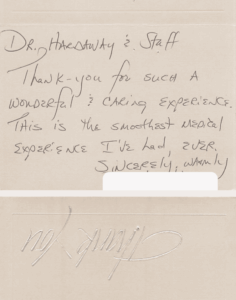 Dr. Hardaway & Staff
Thank-you for such a
wonderful & caring experience.
This is the smoothest medical
experience I've had, ever.
Sincerely, warmly
thank you